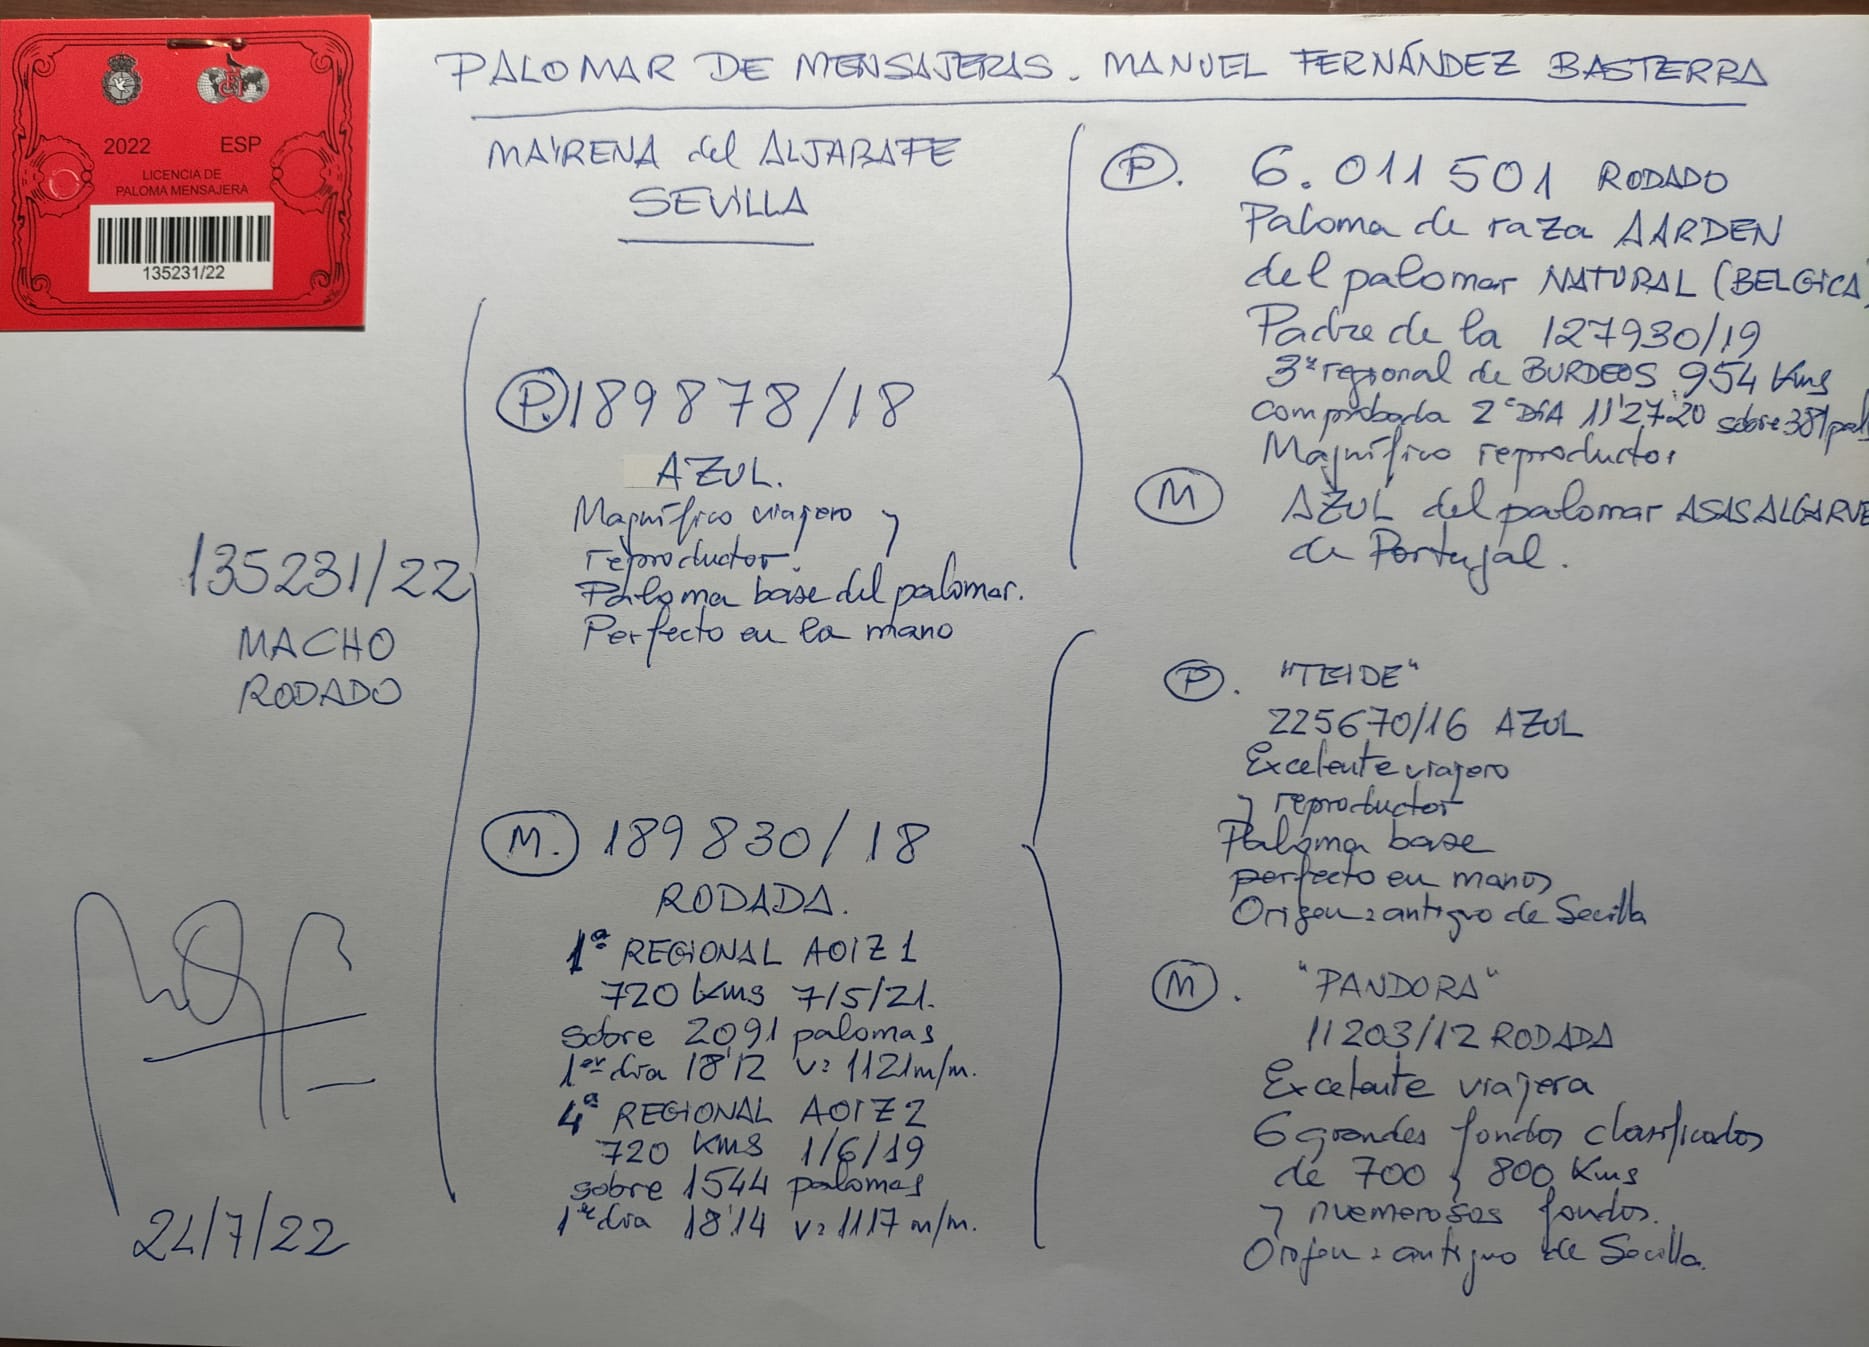 2022 ESP
LICENCIA DE
PALOMA MENSAJERA
135231/22
PALOMAR DE MENSAJERAS. MANUEL FERNÁNDEZ BASTERRA
MAIRENA del ALJARAFE
SEVILLA
135231/22
MACHO
RODADO
24/7/22
P. 189878/18
AZUL.
Magnífico viajero y
reproductor.
Paloma base del palomar.
Perfecto en la mano
M. 189830/18
RODADA.
1ª REGIONAL AOIZ 1
720 kms 7/5/21.
sobre 2091 palomas
1er dia 18'12 v= 1121 m/m.
4ª REGIONAL AOIZ 2
720 kms 1/6/19
sobre 1544 palomas
1er dia 18'14 v= 1117 m/m.
P. 6.011501 RODADO
Paloma de raza AARDEN
del palomar NATURAL (BELGICA)
Padre de la 127930/19
3ª regional de BURDEOS 954 kms
comprobada 2º DÍA 11'27'20 sobre 381 pal
Magnífico reproductor
M AZUL del palomar ASAS ALGARVE
de Portugal.
P. "TEIDE"
225670/16 AZUL
Excelente viajero
y reproductor
Paloma base
perfecto en manos
Origen: antiguo de Sevilla
M. "PANDORA"
11203/12 RODADA
Excelente viajera
6 grandes fondos clasificados
de 700 y 800 Kms
y nuemerosos fondos.
Origen: antiguo de Sevilla.